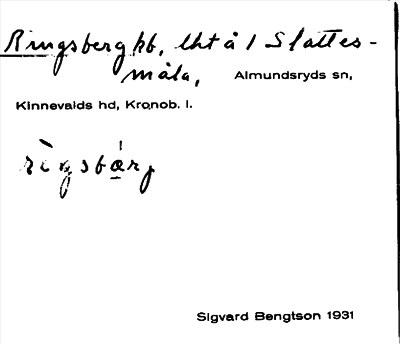 Ringsberg hb, lht å 1 Slattes-
måla, Almundsryds sn,
Kinnevalds hd, Kronob. l.
rìŋsbǽ̠rj
Sigvard Bengtson 1931